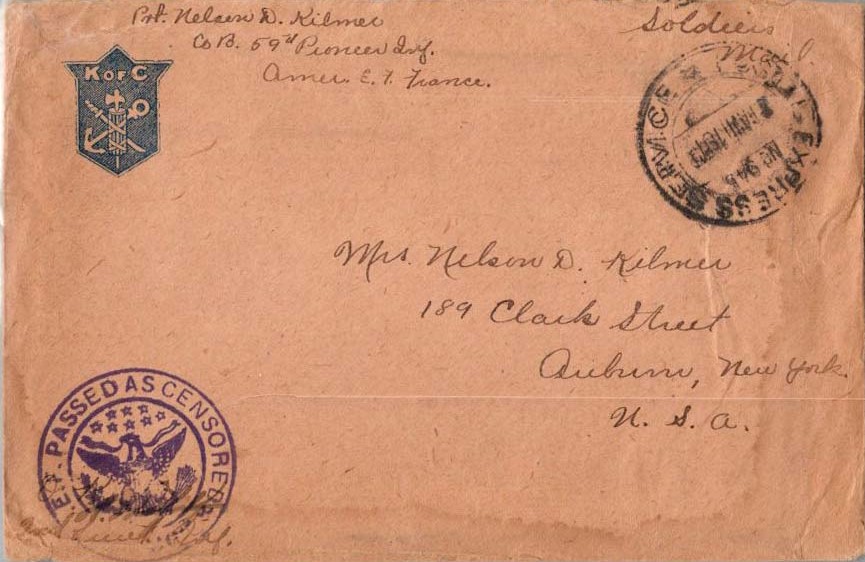 Pvt. Nelson D. Kilmer
Co B. 59th Pioneer Inf.
Amer. E. F. France.
Soldiers
Mail.
K of C
EXPRESS SERVICE
No 945
Mrs. Nelson D. Kilmer
189 Clark Street
Auburn, New York.
U. S. A.
PASSED AS CENSORED
Inf.